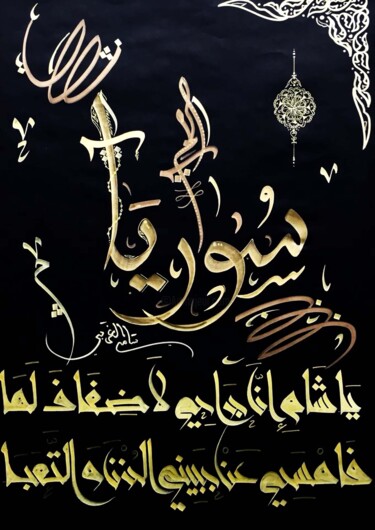 سُوريا
يَا شَامُ إنَّ جراحي لَا ضِفَافَ لَهَا
فَامْسَحي عَنْ جَبِيني الحُزْنَ والتَّعَبا